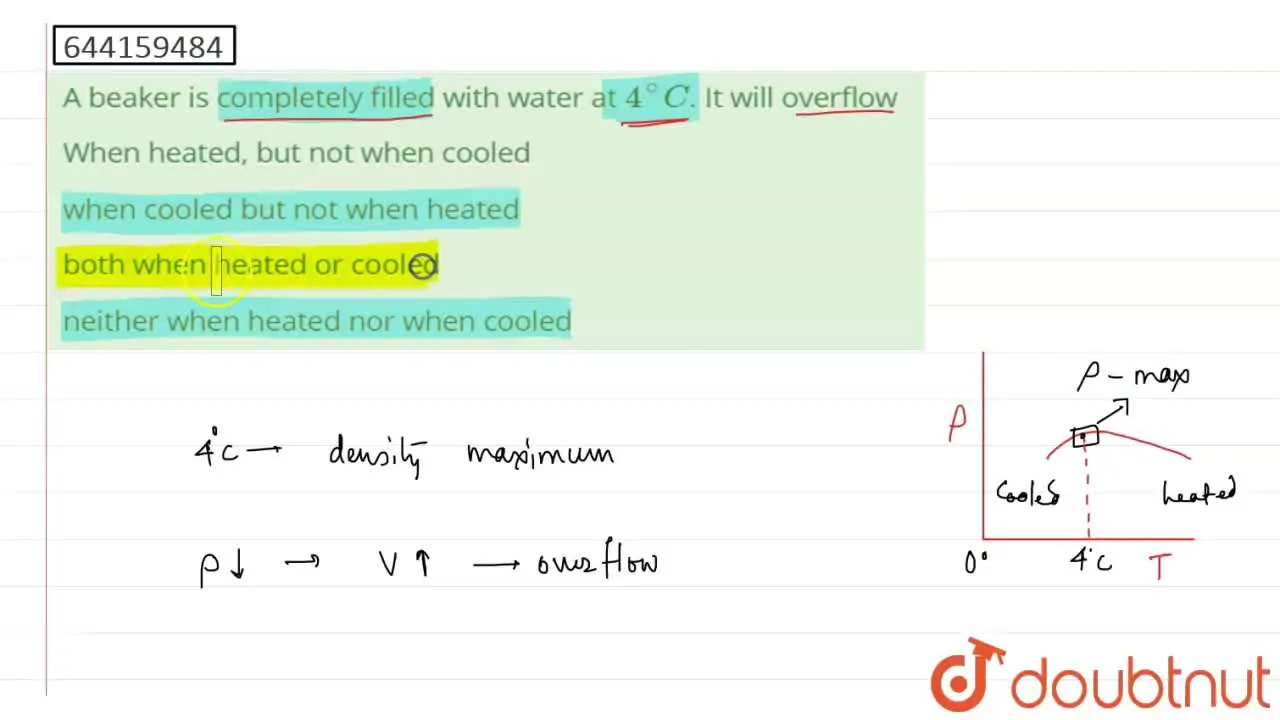 644159484
A beaker is completely filled with water at 4°C. It will overflow
When heated, but not when cooled
when cooled but not when heated
both when heated or cooled
neither when heated nor when cooled
ρ - max
ρ
4°C → density maximum
cooled heated
ρ↓ → V↑ → overflow
0° 4°C T
doubtnut